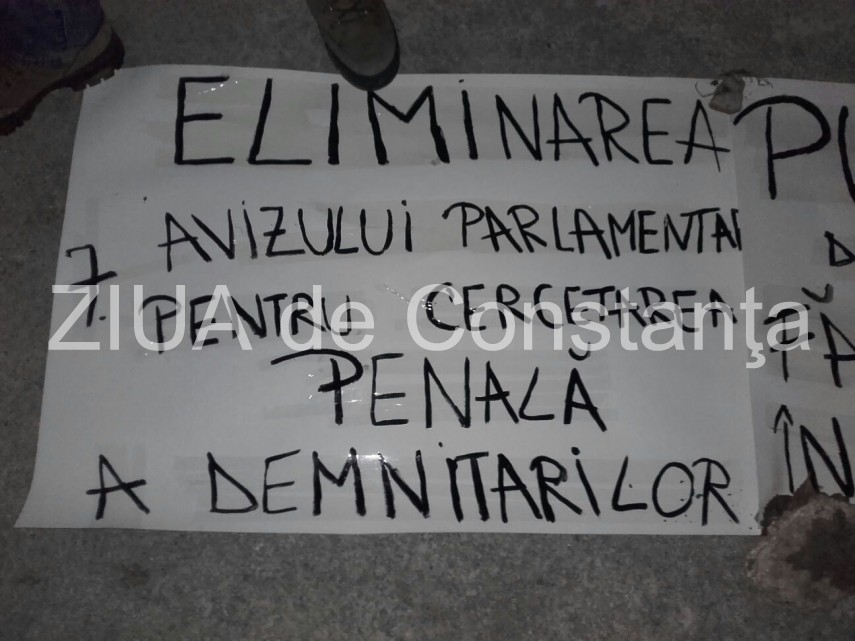 ELIMINAREA
7. AVIZULUI PARLAMENTAR
PENTRU CERCETAREA
PENALĂ
A DEMNITARILOR
ÎN
ZIUA de Constanţa